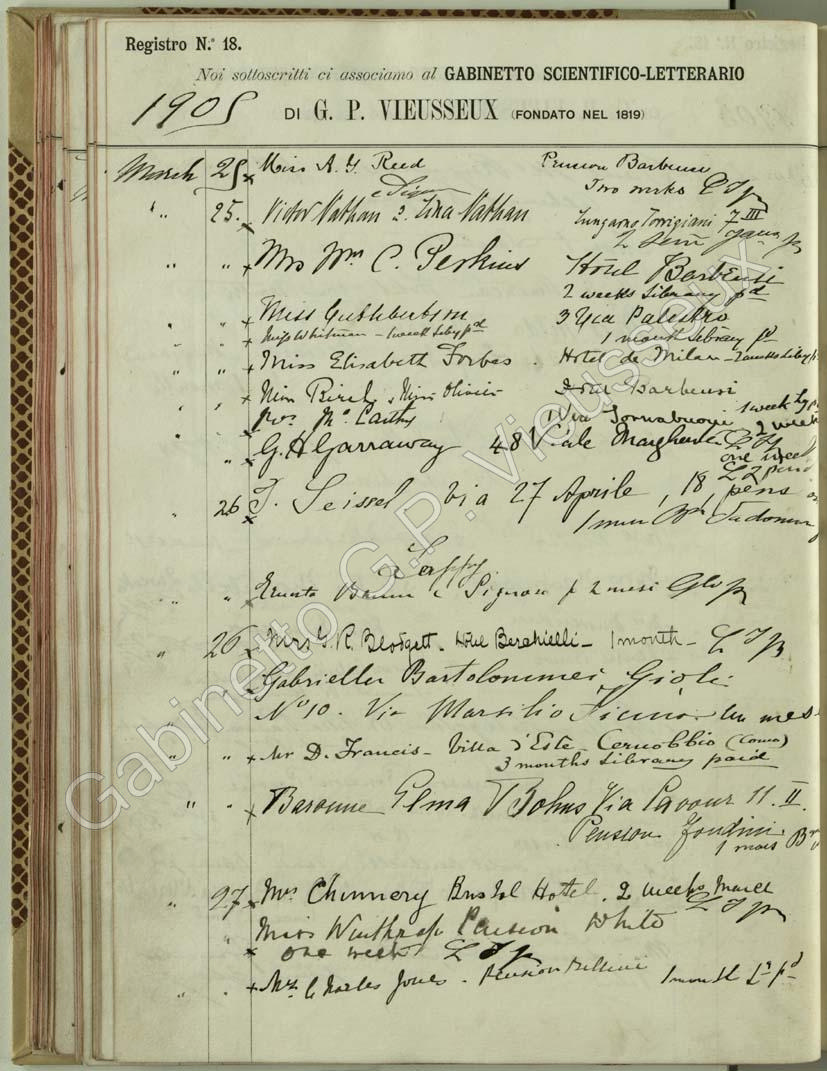 Registro N.º 18.
Noi sottoscritti ci associamo al GABINETTO SCIENTIFICO-LETTERARIO
1905 DI G. P. VIEUSSEUX (FONDATO NEL 1819)
March 25 Miss A. Y. Reed Pension Barbensi
Two weeks
" " 25. Victor Nathan & Lina Nathan Lungarno Torrigiani 7 III
2 sem
" " " Mrs Wm C. Perkins Hôtel Barbensi
2 weeks Library pd
" " Miss Cuthbertson 3 Via Palestro
Miss Whitman - 1 week Liby pd 1 month Library pd
" " Miss Elisabeth Forbes. Hotel de Milan - 2 weeks Liby
" " Miss Birch & Miss Olivier Hôtel Barbensi
1 week
Mrs Mc Carthy 1 Via Tornabuoni 2 week
" G. H. Garraway 48 Viale Margherita
one week
" 26 T. Seissel Via 27 Aprile, 18, pens
1 mese
" " Ernesto e Signora p 2 mesi
" 26 Mrs G. R. Blodgett. Hôtel Berchielli - 1 month -
Gabriella Bartolommei Gioli
" Nº 10. Via Marsilio Ficino. Un mes
" " Mr D. Francis - Villa d'Este - Cernobbio (Como)
3 months Library paid
" " Baronne Elma Via Cavour 11. II.
Pension
1 mois
" 27 Mrs Chinnery Bristol Hotel. 2 weeks
" Miss Winthrop Pension White
one week
" . Mrs Charles Jones. Pension Bellini 1 month
Gabinetto G.P. Vieusseux